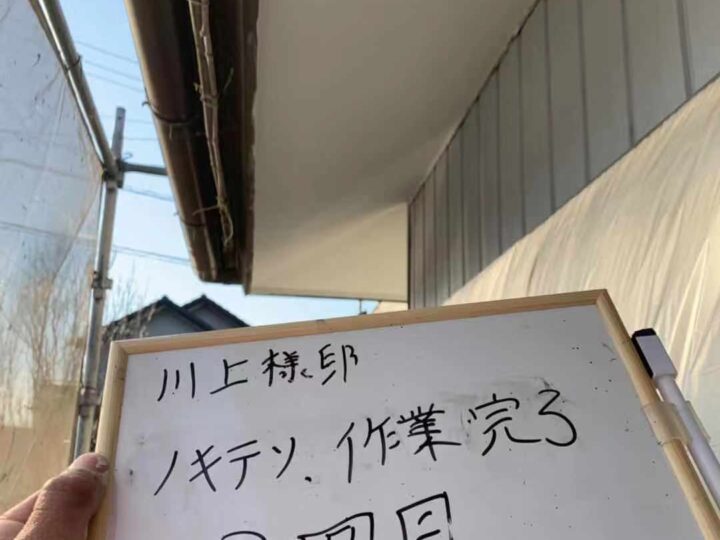 川上様邸
ノキテン、作業完了
2回目